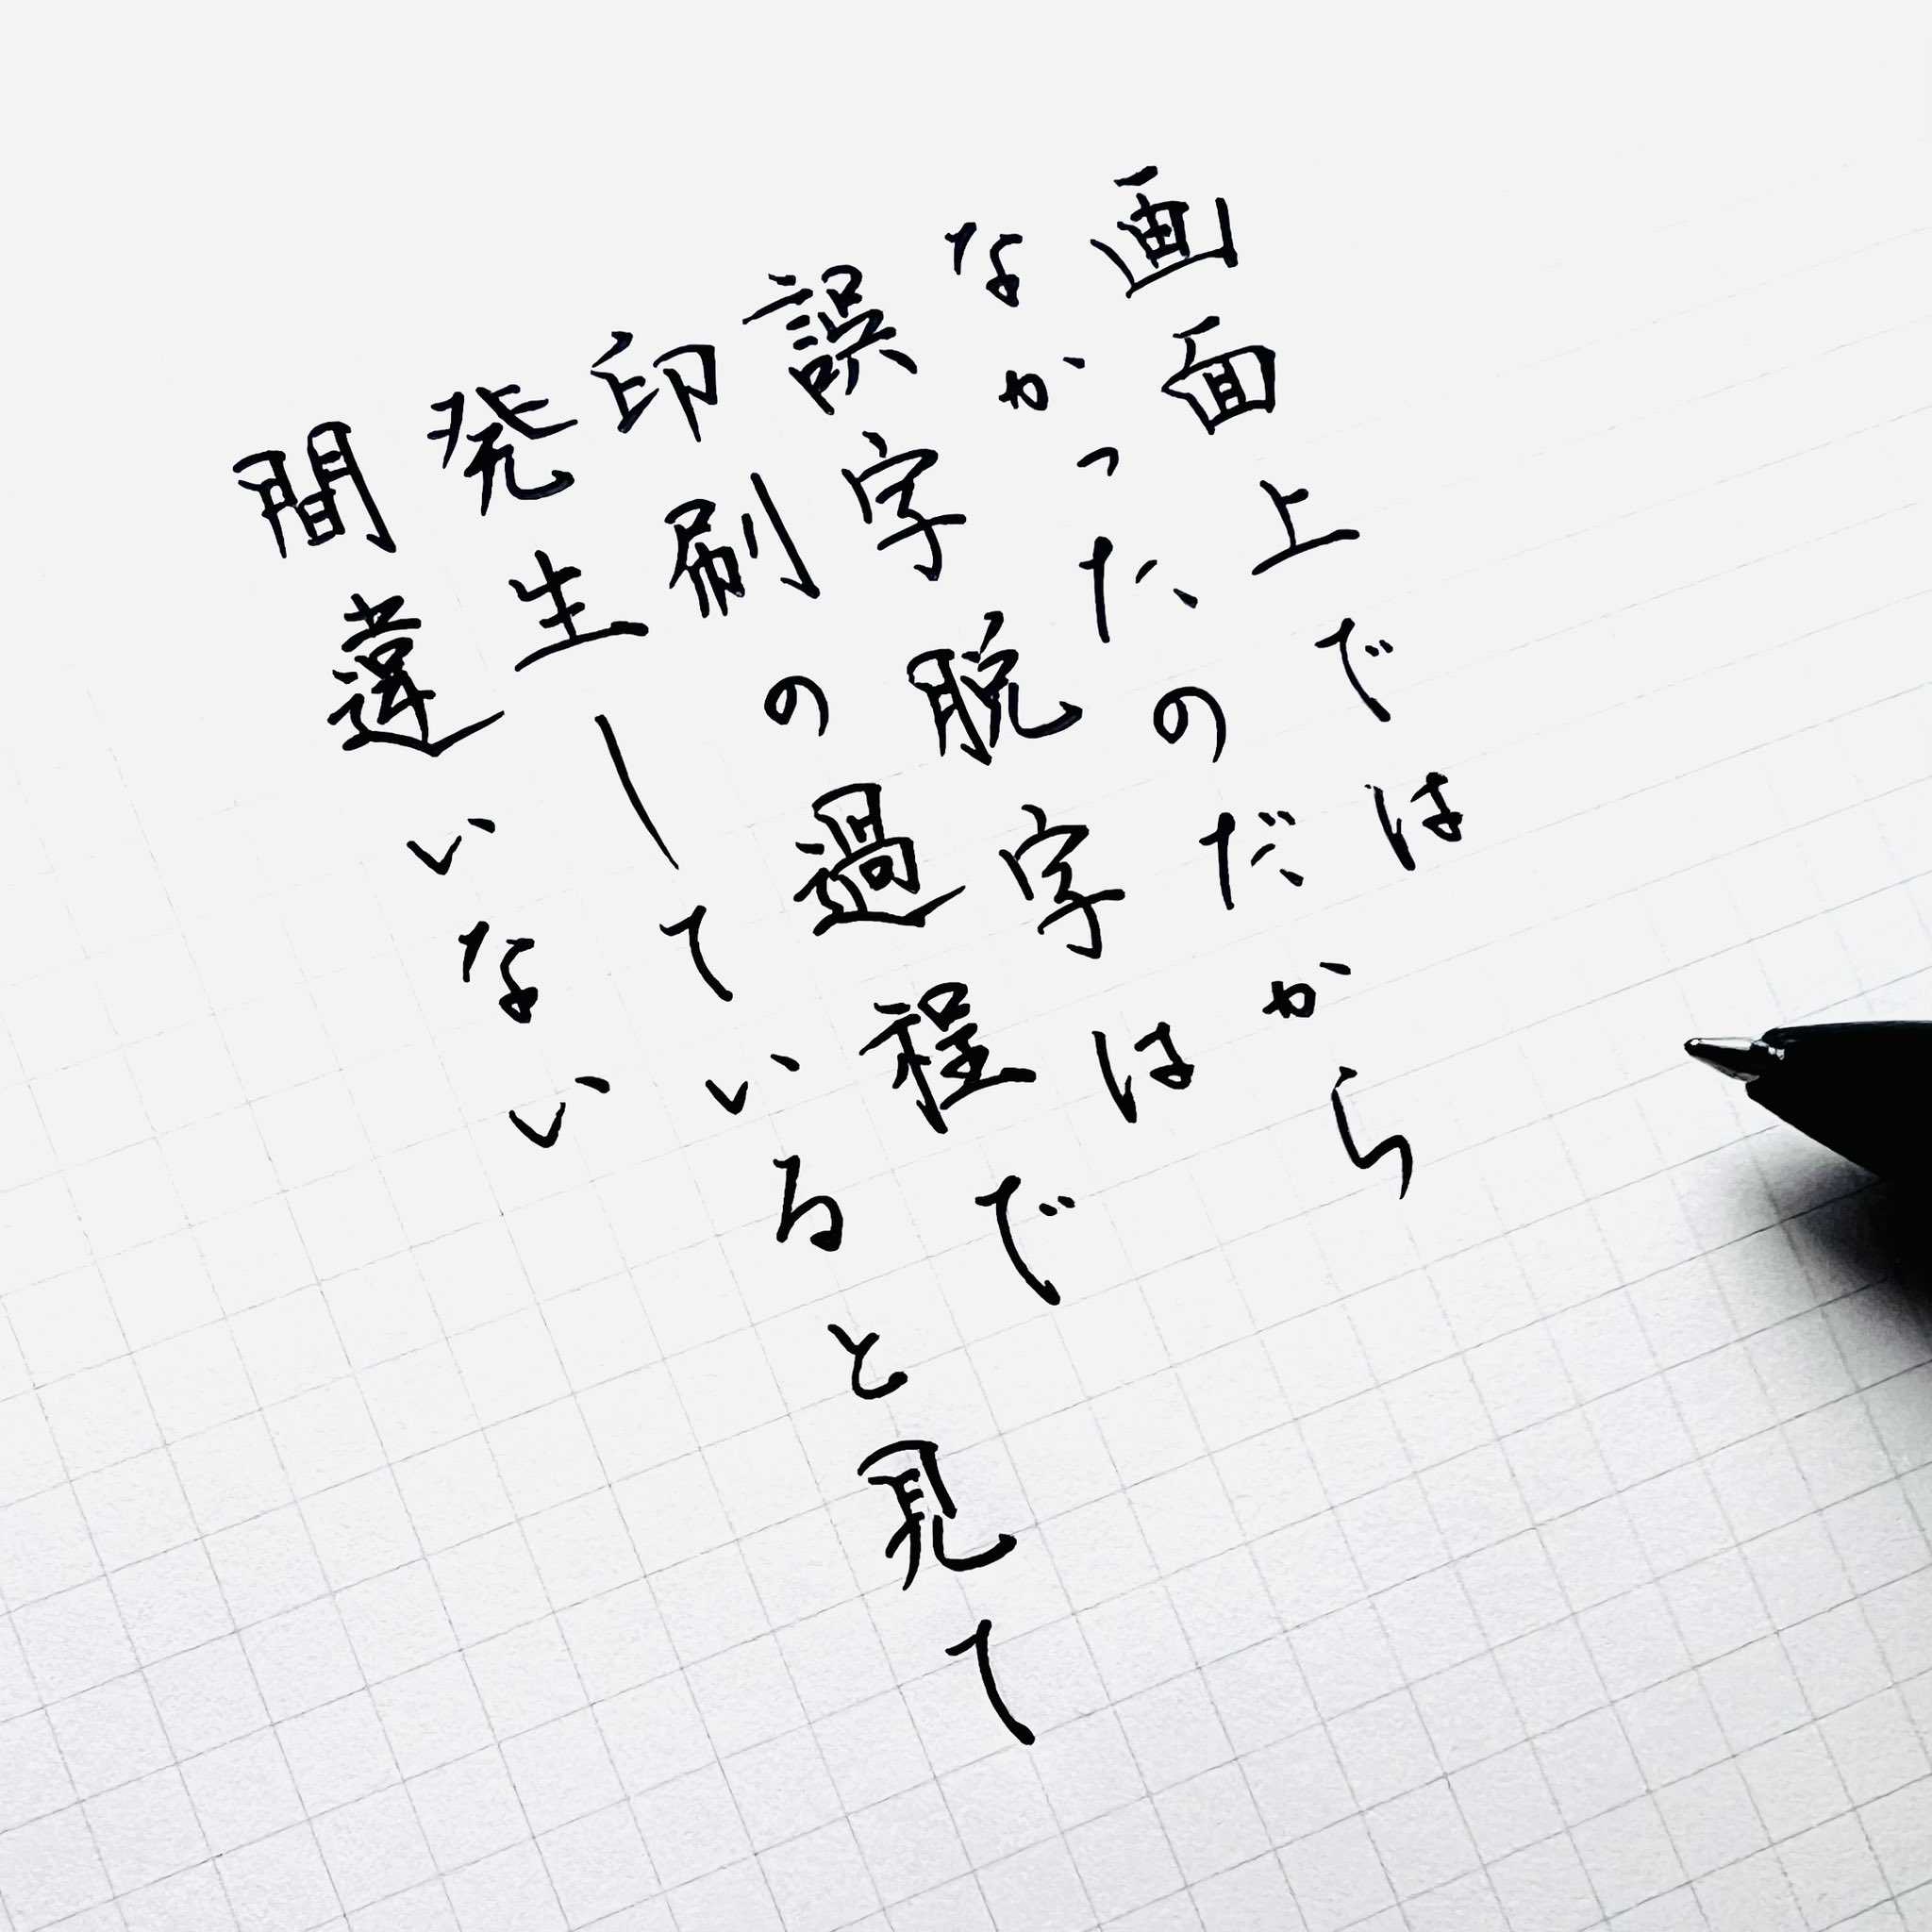 画面上では
なかったのだから
誤字脱字は
印刷の過程で
発生していると見て
間違いない